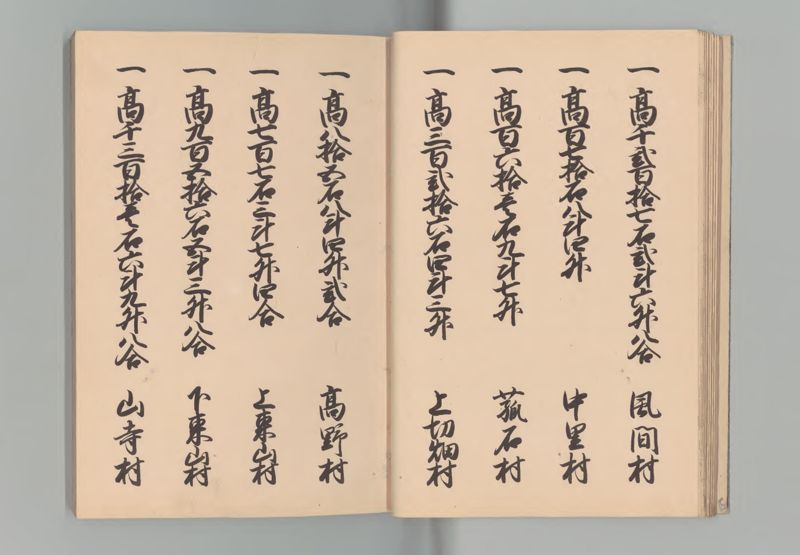 一高千弐百拾七石弐斗六升八合 風間村
一高百七拾石八斗四升 中里村
一高百六拾壱石九斗七升 菰石村
一高三百弐拾六石四斗三升 上切畑村
一高八拾五石八斗四升弐合 高野村
一高七百七石三斗七升四合 上東山村
一高九百五拾六石五斗三升八合 下東山村
一高千三百拾壱石六斗九升八合 山寺村